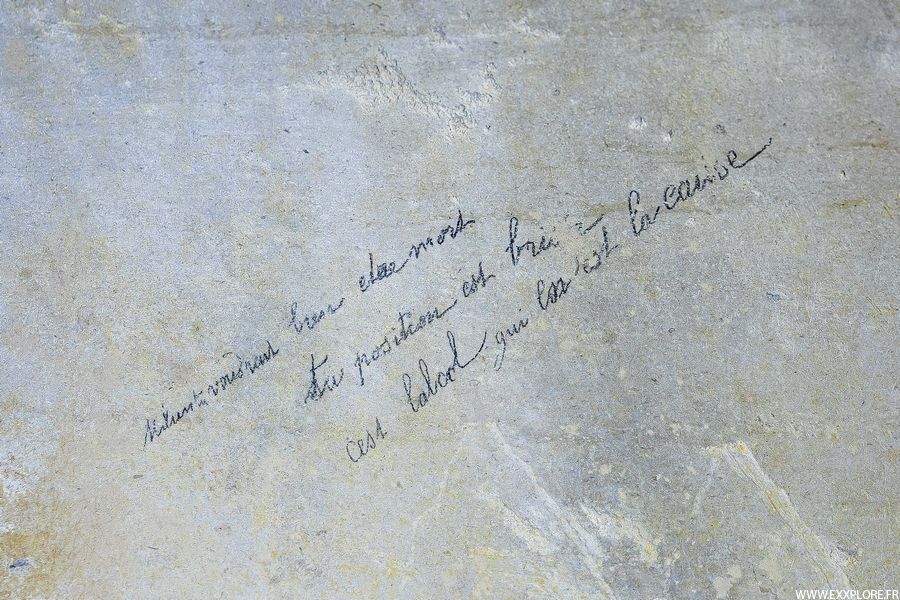 voudrais bien etre mort
ta position est brie a
cest lalcol qui en est la cause
WWW.EXXPLORE.FR